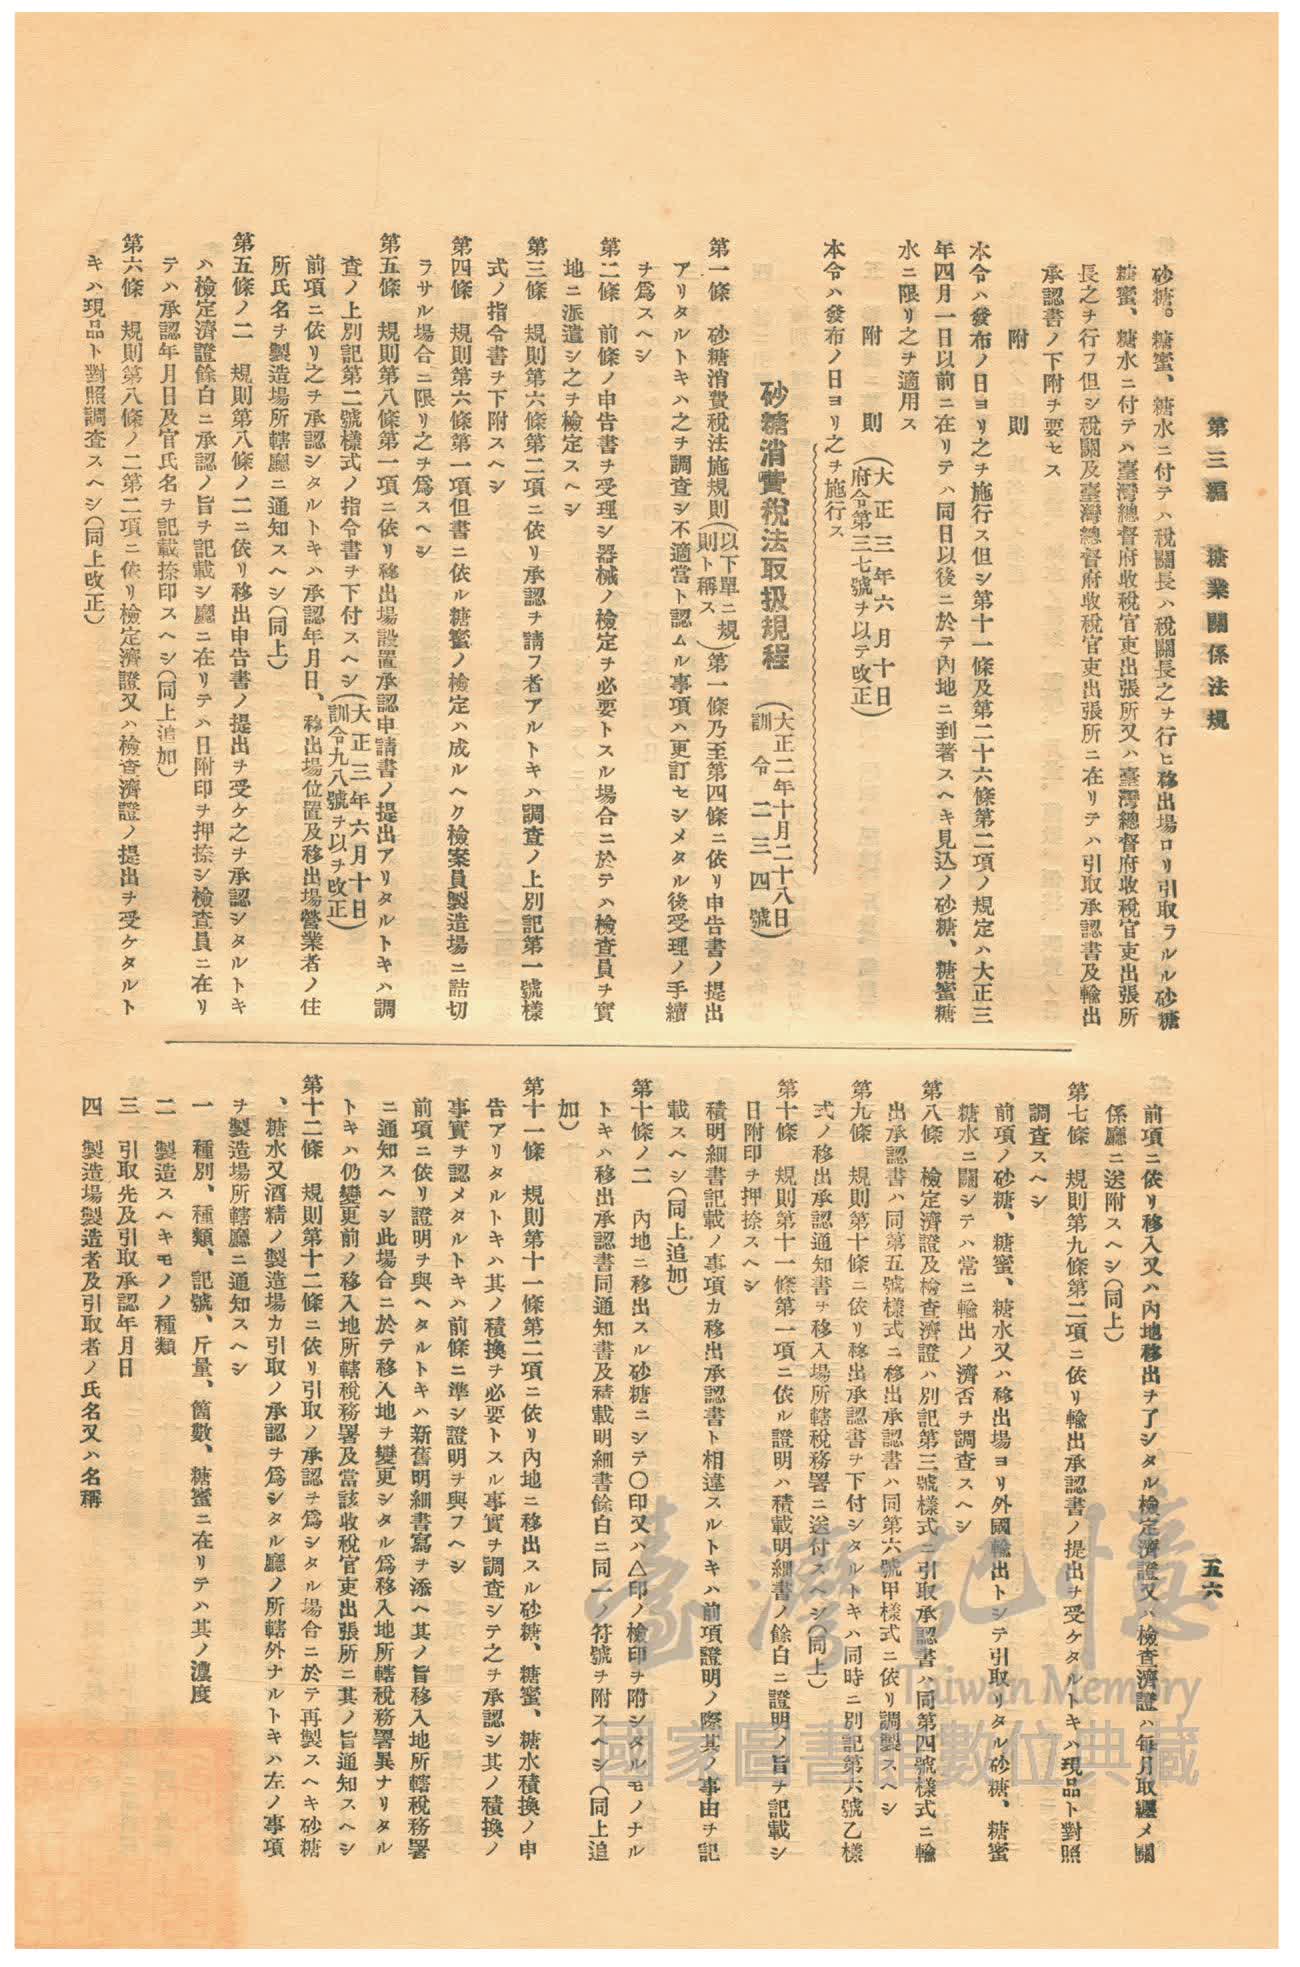 第三編　糖業關係法規
五六
砂糖。糖蜜、糖水ニ付テハ稅關長ハ稅關長之ヲ行ヒ移出場ヨリ引取ラルル砂糖
糖蜜、糖水ニ付テハ臺灣總督府收稅官吏出張所又ハ臺灣總督府收稅官吏出張所
長之ヲ行フ但シ稅關及臺灣總督府收稅官吏出張所ニ在リテハ引取承認書及輸出
承認書ノ下附ヲ要セス
附　則
本令ハ發布ノ日ヨリ之ヲ施行ス但シ第十一條及第二十六條第二項ノ規定ハ大正三
年四月一日以前ニ在リテハ同日以後ニ於テ內地ニ到著スヘキ見込ノ砂糖、糖蜜糖
水ニ限リ之ヲ適用ス
附　則（大正三年六月十日府令第三七號ヲ以テ改正）
本令ハ發布ノ日ヨリ之ヲ施行ス
砂糖消費稅法取扱規程（大正二年十月二十八日訓令二三四號）
第一條　砂糖消費稅法施規則（以下單ニ規則ト稱ス）第一條乃至第四條ニ依リ申告書ノ提出
アリタルトキハ之ヲ調查シ不適當ト認ムル事項ハ更訂セシメタル後受理ノ手續
ヲ爲スヘシ
第二條　前條ノ申告書ヲ受理シ器械ノ檢定ヲ必要トスル場合ニ於テハ檢查員ヲ實
地ニ派遣シ之ヲ檢定スヘシ
第三條　規則第六條第二項ニ依リ承認ヲ請フ者アルトキハ調查ノ上別記第一號樣
式ノ指令書ヲ下附スヘシ
第四條　規則第六條第一項但書ニ依ル糖蜜ノ檢定ハ成ルヘク檢案員製造場ニ詰切
ラサル場合ニ限リ之ヲ爲スヘシ
第五條　規則第八條第一項ニ依リ移出場設置承認申請書ノ提出アリタルトキハ調
查ノ上別記第二號樣式ノ指令書ヲ下付スヘシ（大正三年六月十日訓令九八號ヲ以ヲ改正）
前項ニ依リ之ヲ承認シタルトキハ承認年月日、移出場位置及移出場營業者ノ住
所氏名ヲ製造場所轄廳ニ通知スヘシ（同上）
第五條ノ二　規則第八條ノ二ニ依リ移出申告書ノ提出ヲ受ケ之ヲ承認シタルトキ
ハ檢定濟證餘白ニ承認ノ旨ヲ記載シ廳ニ在リテハ日附印ヲ押捺シ檢查員ニ在リ
テハ承認年月日及官氏名ヲ記載捺印スヘシ（同上追加）
第六條　規則第八條ノ二第二項ニ依リ檢定濟證又ハ檢查濟證ノ提出ヲ受ケタルト
キハ現品ト對照調查スヘシ（同上改正）
前項ニ依リ移入又ハ內地移出ヲ了シタル檢定濟證又ハ檢查濟證ハ每月取纒メ關
係廳ニ送附スヘシ（同上）
第七條　規則第九條第二項ニ依リ輸出承認書ノ提出ヲ受ケタルトキハ現品ト對照
調查スヘシ
前項ノ砂糖、糖蜜、糖水又ハ移出場ヨリ外國輸出トシテ引取リタル砂糖、糖蜜
糖水ニ關シテハ常ニ輸出ノ濟否ヲ調查スヘシ
第八條　檢定濟證及檢查濟證ハ別記第三號樣式ニ引取承認書ハ同第四號樣式ニ輸
出承認書ハ同第五號樣式ニ移出承認書ハ同第六號甲樣式ニ依リ調製スヘシ
第九條　規則第十條ニ依リ移出承認書ヲ下付シタルトキハ同時ニ別記第六號乙樣
式ノ移出承認通知書ヲ移入場所轄稅務署ニ送付スヘシ（同上）
第十條　規則第十一條第一項ニ依ル證明ハ積載明細書ノ餘白ニ證明ノ旨ヲ記載シ
日附印ヲ押捺スヘシ
積明細書記載ノ事項カ移出承認書ト相違スルトキハ前項證明ノ際其ノ事由ヲ記
載スヘシ（同上追加）
第十條ノ二　內地ニ移出スル砂糖ニシテ〇印又ハ△印ノ檢印ヲ附シタルモノナル
トキハ移出承認書同通知書及積載明細書餘白ニ同一ノ符號ヲ附スヘシ（同上追
加）
第十一條　規則第十一條第二項ニ依リ內地ニ移出スル砂糖、糖蜜、糖水積換ノ申
告アリタルトキハ其ノ積換ヲ必要トスル事實ヲ調查シテ之ヲ承認シ其ノ積換ノ
事實ヲ認メタルトキハ前條ニ準シ證明ヲ與フヘシ
前項ニ依リ證明ヲ與ヘタルトキハ新舊明細書寫ヲ添ヘ其ノ旨移入地所轄稅務署
ニ通知スヘシ此場合ニ於テ移入地ヲ變更シタル爲移入地所轄稅務署異ナリタル
トキハ仍變更前ノ移入地所轄稅務署及當該收稅官吏出張所ニ其ノ旨通知スヘシ
第十二條　規則第十二條ニ依リ引取ノ承認ヲ爲シタル場合ニ於テ再製スヘキ砂糖
、糖水又酒精ノ製造場カ引取ノ承認ヲ爲シタル廳ノ所轄外ナルトキハ左ノ事項
ヲ製造場所轄廳ニ通知スヘシ
一　種別、種類、記號、斤量、箇數、糖蜜ニ在リテハ其ノ濃度
二　製造スヘキモノノ種類
三　引取先及引取承認年月日
四　製造場製造者及引取者ノ氏名又ハ名稱
臺灣記憶
Taiwan Memory
國家圖書館數位典藏